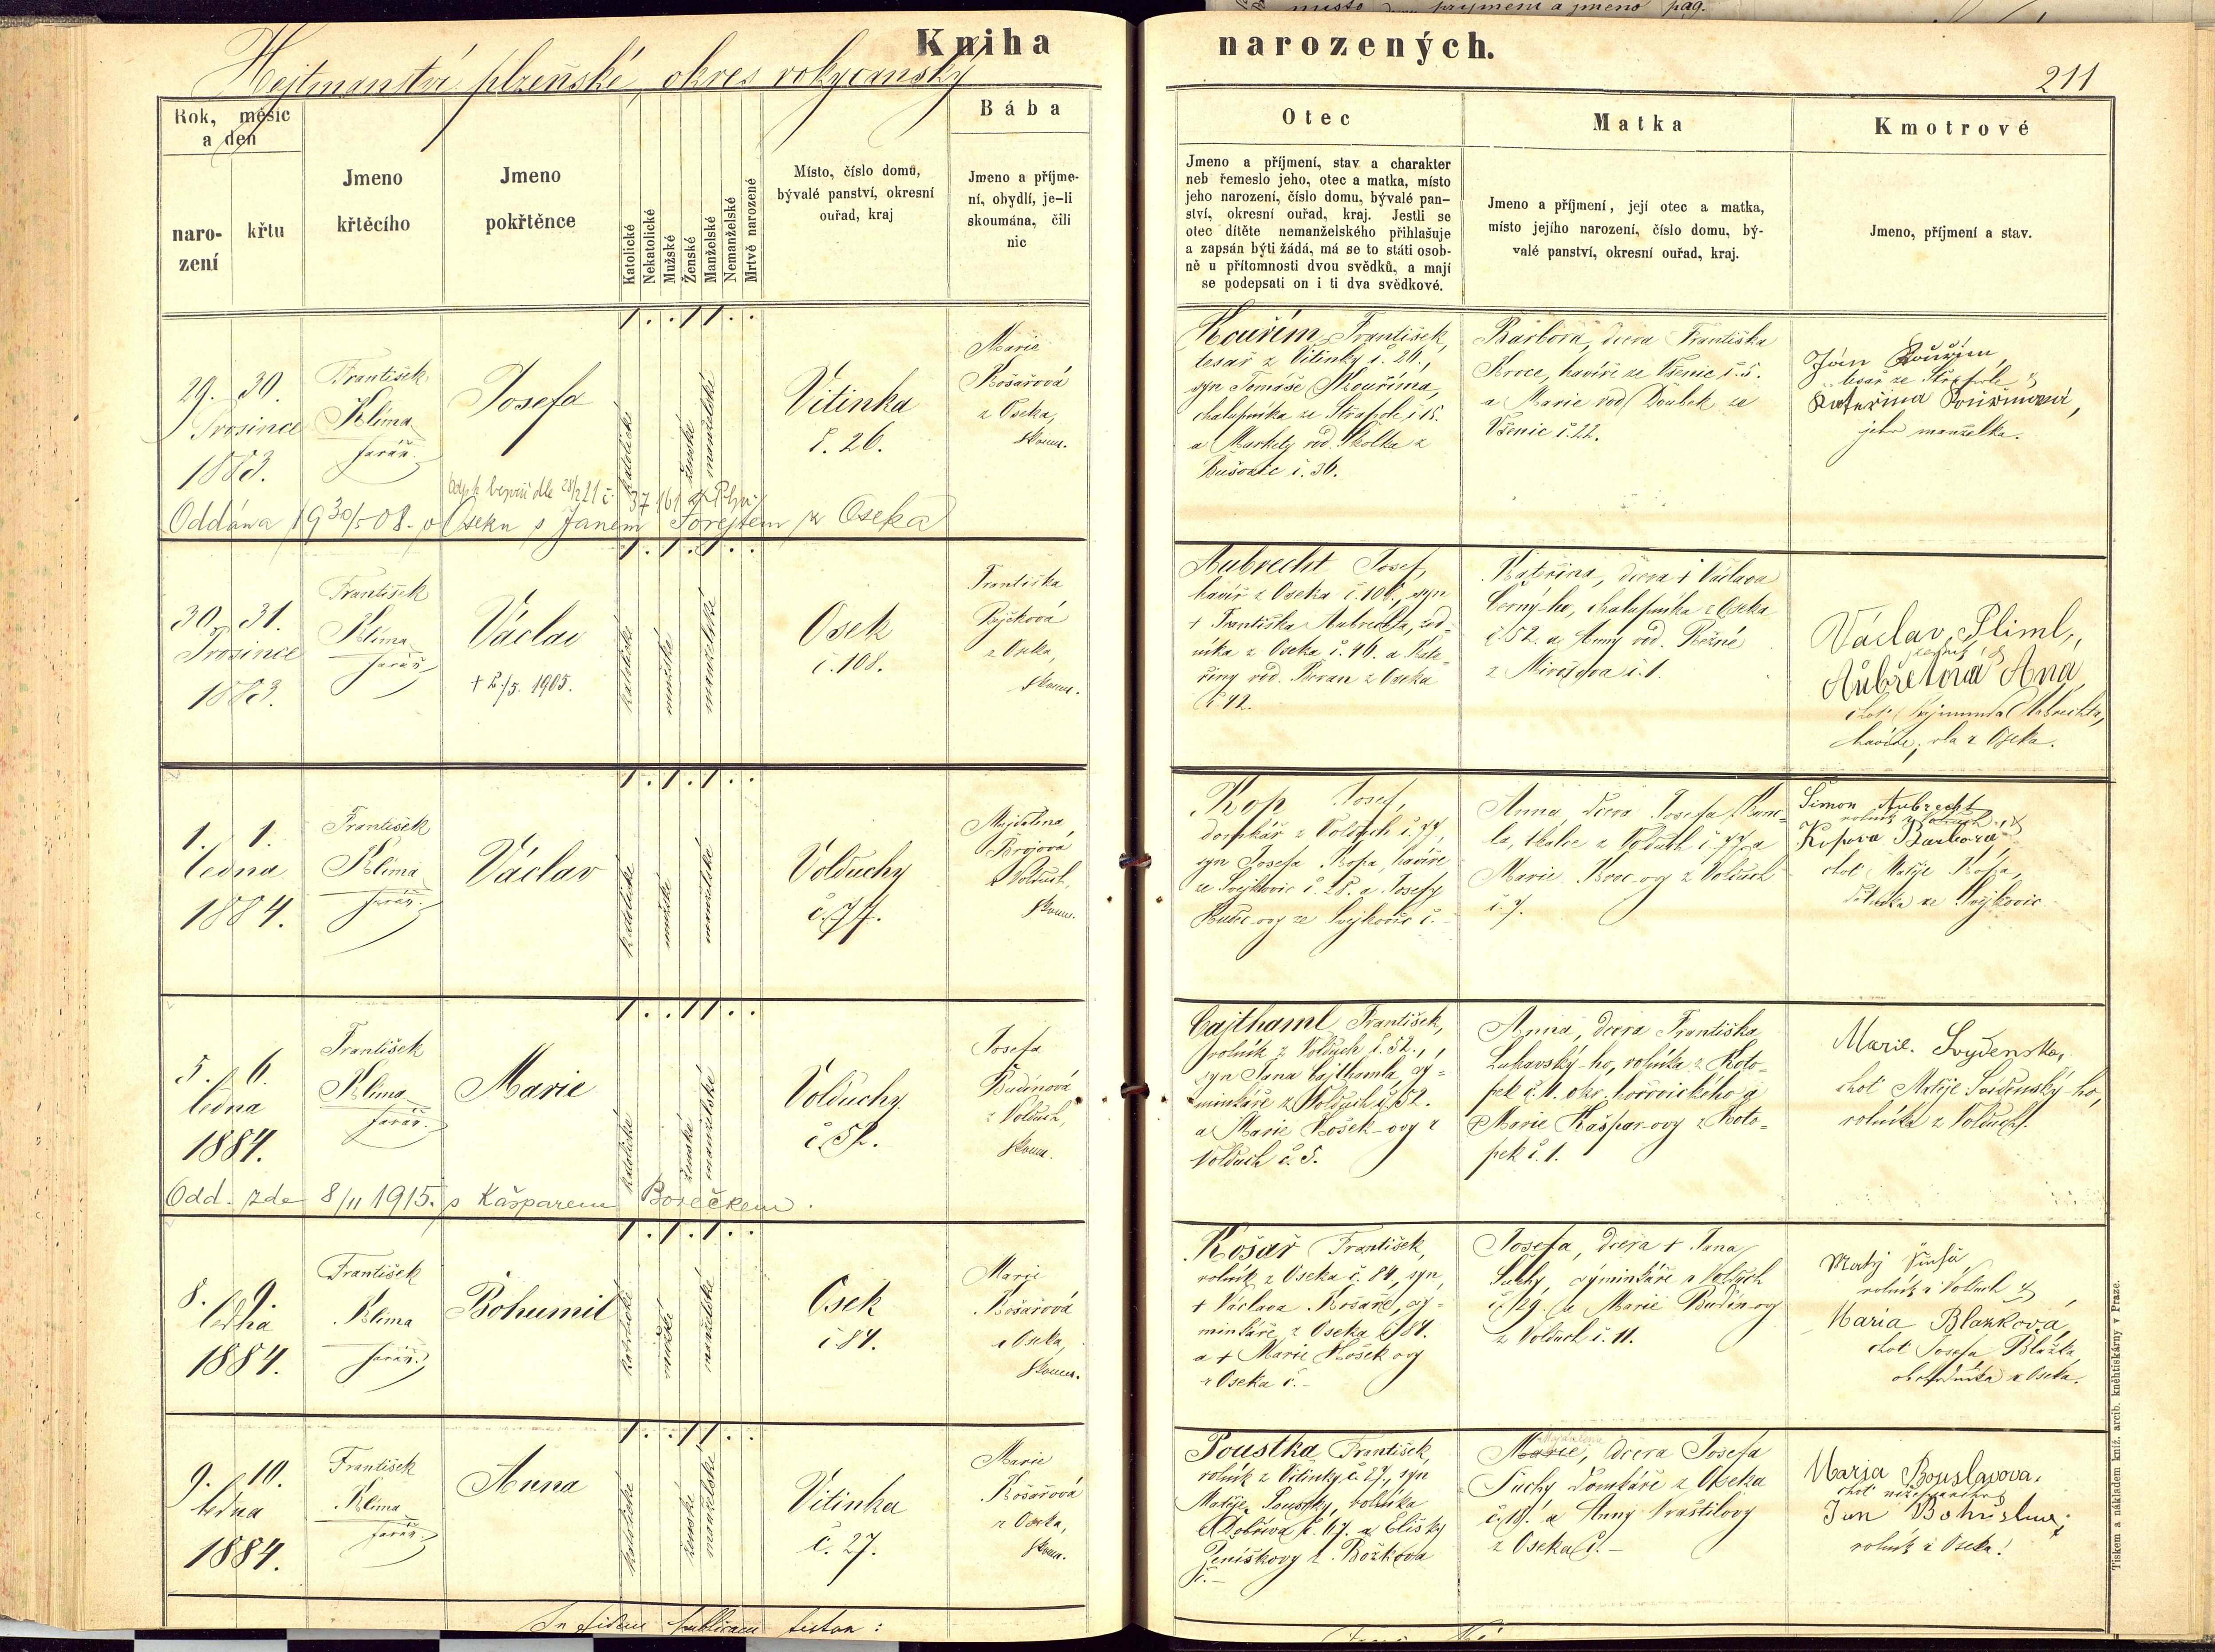 místo příjmení a jméno pag.
Kniha narozených.
Hejtmanství plzeňské, okres rokycanský
211
Rok, měsíc
a den
naro-
zení
křtu
Jmeno
křtěcího
Jmeno
pokřtěnce
Katolické
Nekatolické
Mužské
Ženské
Manželské
Nemanželské
Mrtvě narozené
Místo, číslo domu,
bývalé panství, okresní
ouřad, kraj
Bába
Jmeno a příjme-
ní, obydlí, je-li
skoumána, čili
nic
Otec
Jmeno a příjmení, stav a charakter
neb řemeslo jeho, otec a matka, místo
jeho narození, číslo domu, bývalé pan-
ství, okresní ouřad, kraj. Jestli se
otec dítěte nemanželského přihlašuje
a zapsán býti žádá, má se to státi osob-
ně u přítomnosti dvou svědků, a mají
se podepsati on i ti dva svědkové.
Matka
Jmeno a příjmení, její otec a matka,
místo jejího narození, číslo domu, bý-
valé panství, okresní ouřad, kraj.
Kmotrové
Jmeno, příjmení a stav.
1 . . 1 1 . .
29. 30.
Prosince
1883.
František
Klíma
farář.
Josefa
katolické
ženské
manželské
Vitinka
č. 26.
Marie
Košařová
z Oseka,
skoum.
Kouřím František,
tesař z Vitinky č. 26.,
syn Tomáše Kouříma,
chalupníka ze Střapole č. 15.
a Markéty rod. Školka z
Bušovic č. 36.
Barbora, dcera Františka
Kroce, havíře ze Všenic č. 5.
a Marie rod. Doubek ze
Všenic č. 22.
Ján Kouřím
tesař ze Střapole &
Kateřina Kouřimová,
jeho manželka.
Oddána 19 30/5 08. v Oseku s Janem Forejtem z Oseka
1 . 1 . 1 . .
30. 31.
Prosince
1883.
František
Klíma
farář
Václav
+ 2./5. 1905.
katolické
mužské
manželské
Osek
č. 108.
Františka
z Oseka,
skoum.
Aubrecht Josef,
havíř z Oseka č. 108., syn
+ Františka Aubrechta, zed-
níka z Oseka č. 96. a Kate-
řiny rod. Beran z Oseka
č. 42.
Kateřina, dcera + Václava
Černý-ho, chalupníka z Oseka
č. 52. a Anny rod. Režné
z Mirošova č. 1.
Václav Pliml,
Aubretová Ana
havíře, vla z Oseka.
1 . 1 . 1 . .
1. 1.
ledna
1884.
František
Klíma
farář.
Václav
katolické
mužské
manželské
Volduchy
č. 77.
Majdalena
Brojová
z Volduch,
skoum.
Kop Josef,
domkář z Volduch č. 77,
syn Josefa Kopa, havíře
ze Svejkovic č. 28. a Josefy
ze Svejkovic č. -
Anna, dcera Josefa
la, tkalce z Volduch č. 77. a
Marie Kroc-ovy z Volduch
č. 7.
Šimon Aubrecht
Kopova Barbora
choť Matěje Kopa,
ze Svejkovic
1 . . 1 1 . .
5. 6.
ledna
1884.
František
Klíma
farář.
Marie
katolické
ženské
manželské
Volduchy
č. 52.
Josefa
Budínová
z Volduch,
skoum.
Cajthaml František,
rolník z Volduch č. 52.,
syn Jana Cajthamla, vý-
minkáře z Volduch č. 52.
a Marie Hošek-ovy z
Volduch č. 5.
Anna, dcera Františka
Luhavský-ho, rolníka z Koto-
pek č. 11. okr. hořovického a
Marie Kašpar-ovy z Koto-
pek č. 1.
Marie Svydenska,
choť Matěje Svidenský-ho,
rolníka z Volduch.
Odd. zde 8/II 1915. s Kašparem Borečkem.
1 . 1 . 1 . .
8. 9.
ledna
1884.
František
Klíma
farář.
Bohumil
katolické
mužské
manželské
Osek
č. 84.
Marie
Košařová
z Oseka,
skoum.
Košař František,
rolník z Oseka č. 84., syn
+ Václava Košaře, vý-
minkáře z Oseka č. 84.
a + Marie Hošek-ovy
z Oseka č. -
Josefa, dcera + Jana
Suchy, výminkáře z Volduch
č. 29. a Marie Budín-ovy
z Volduch č. 11.
rolník z Volduch &
Maria Blazková,
choť Josefa Blažka,
obchodníka z Oseka.
1 . . 1 1 . .
9. 10.
ledna
1884.
František
Klíma
farář.
Anna
katolické
ženské
manželské
Vitinka
č. 27.
Marie
Košařová
z Oseka,
skoum.
Poustka František,
rolník z Vitinky č. 27., syn
Matěje Poustky, rolníka
z Dobříva č. 67. a Elišky
Jeníškovy z Božkova
č. -
Majdalena
Marie, dcera Josefa
Suchy domkáře z Oseka
č. 18. a Anny Vraštilovy
z Oseka č. -
Maria Bouslavova,
Jan Bohuslav,
rolník z Oseka.
In fidem publicam testor:
Tiskem a nákladem kníž. arcib. knihtiskárny v Praze.